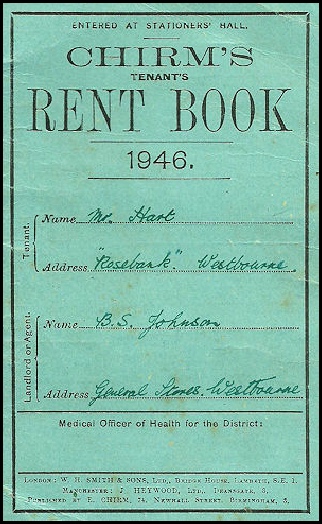 ENTERED AT STATIONERS' HALL.
CHIRM'S
TENANT'S
RENT BOOK
1946.
Tenant.
Name Mr. Hart
Address "Rosebank". Westbourne.
Landlord or Agent.
Name B. S. Johnson
Address General Stores. Westbourne
Medical Officer of Health for the District:
LONDON: W. H. SMITH & SONS, LTD., BRIDGE HOUSE, LAMBETH, S.E. 1.
MANCHESTER: J. HEYWOOD, LTD., DEANSGATE, 3.
PUBLISHED BY R. CHIRM, 74, NEWHALL STREET, BIRMINGHAM, 3.